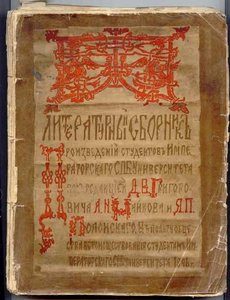 ЛИТЕРАТУРНЫЙ СБОРНИКЪ
ПРОИЗВЕДЕНІЙ СТУДЕНТОВЪ ИМПЕ
РАТОРСКАГО СПБ УНИВЕРСИТЕТА
ПОДЪ РЕДАКЦІЕЙ Д.В. ГРИГОРО
ВИЧА А.Н. МАЙКОВА И Я.П.
ПОЛОНСКАГО. ВЪ ПОЛЬЗУ ОБЩЕ
СТВА ВСПОМОЩЕСТВОВАНІЯ СТУДЕНТАМЪ ИМ
ПЕРАТОРСКАГО СПБ УНИВЕРСИТЕТА 1896 Г.